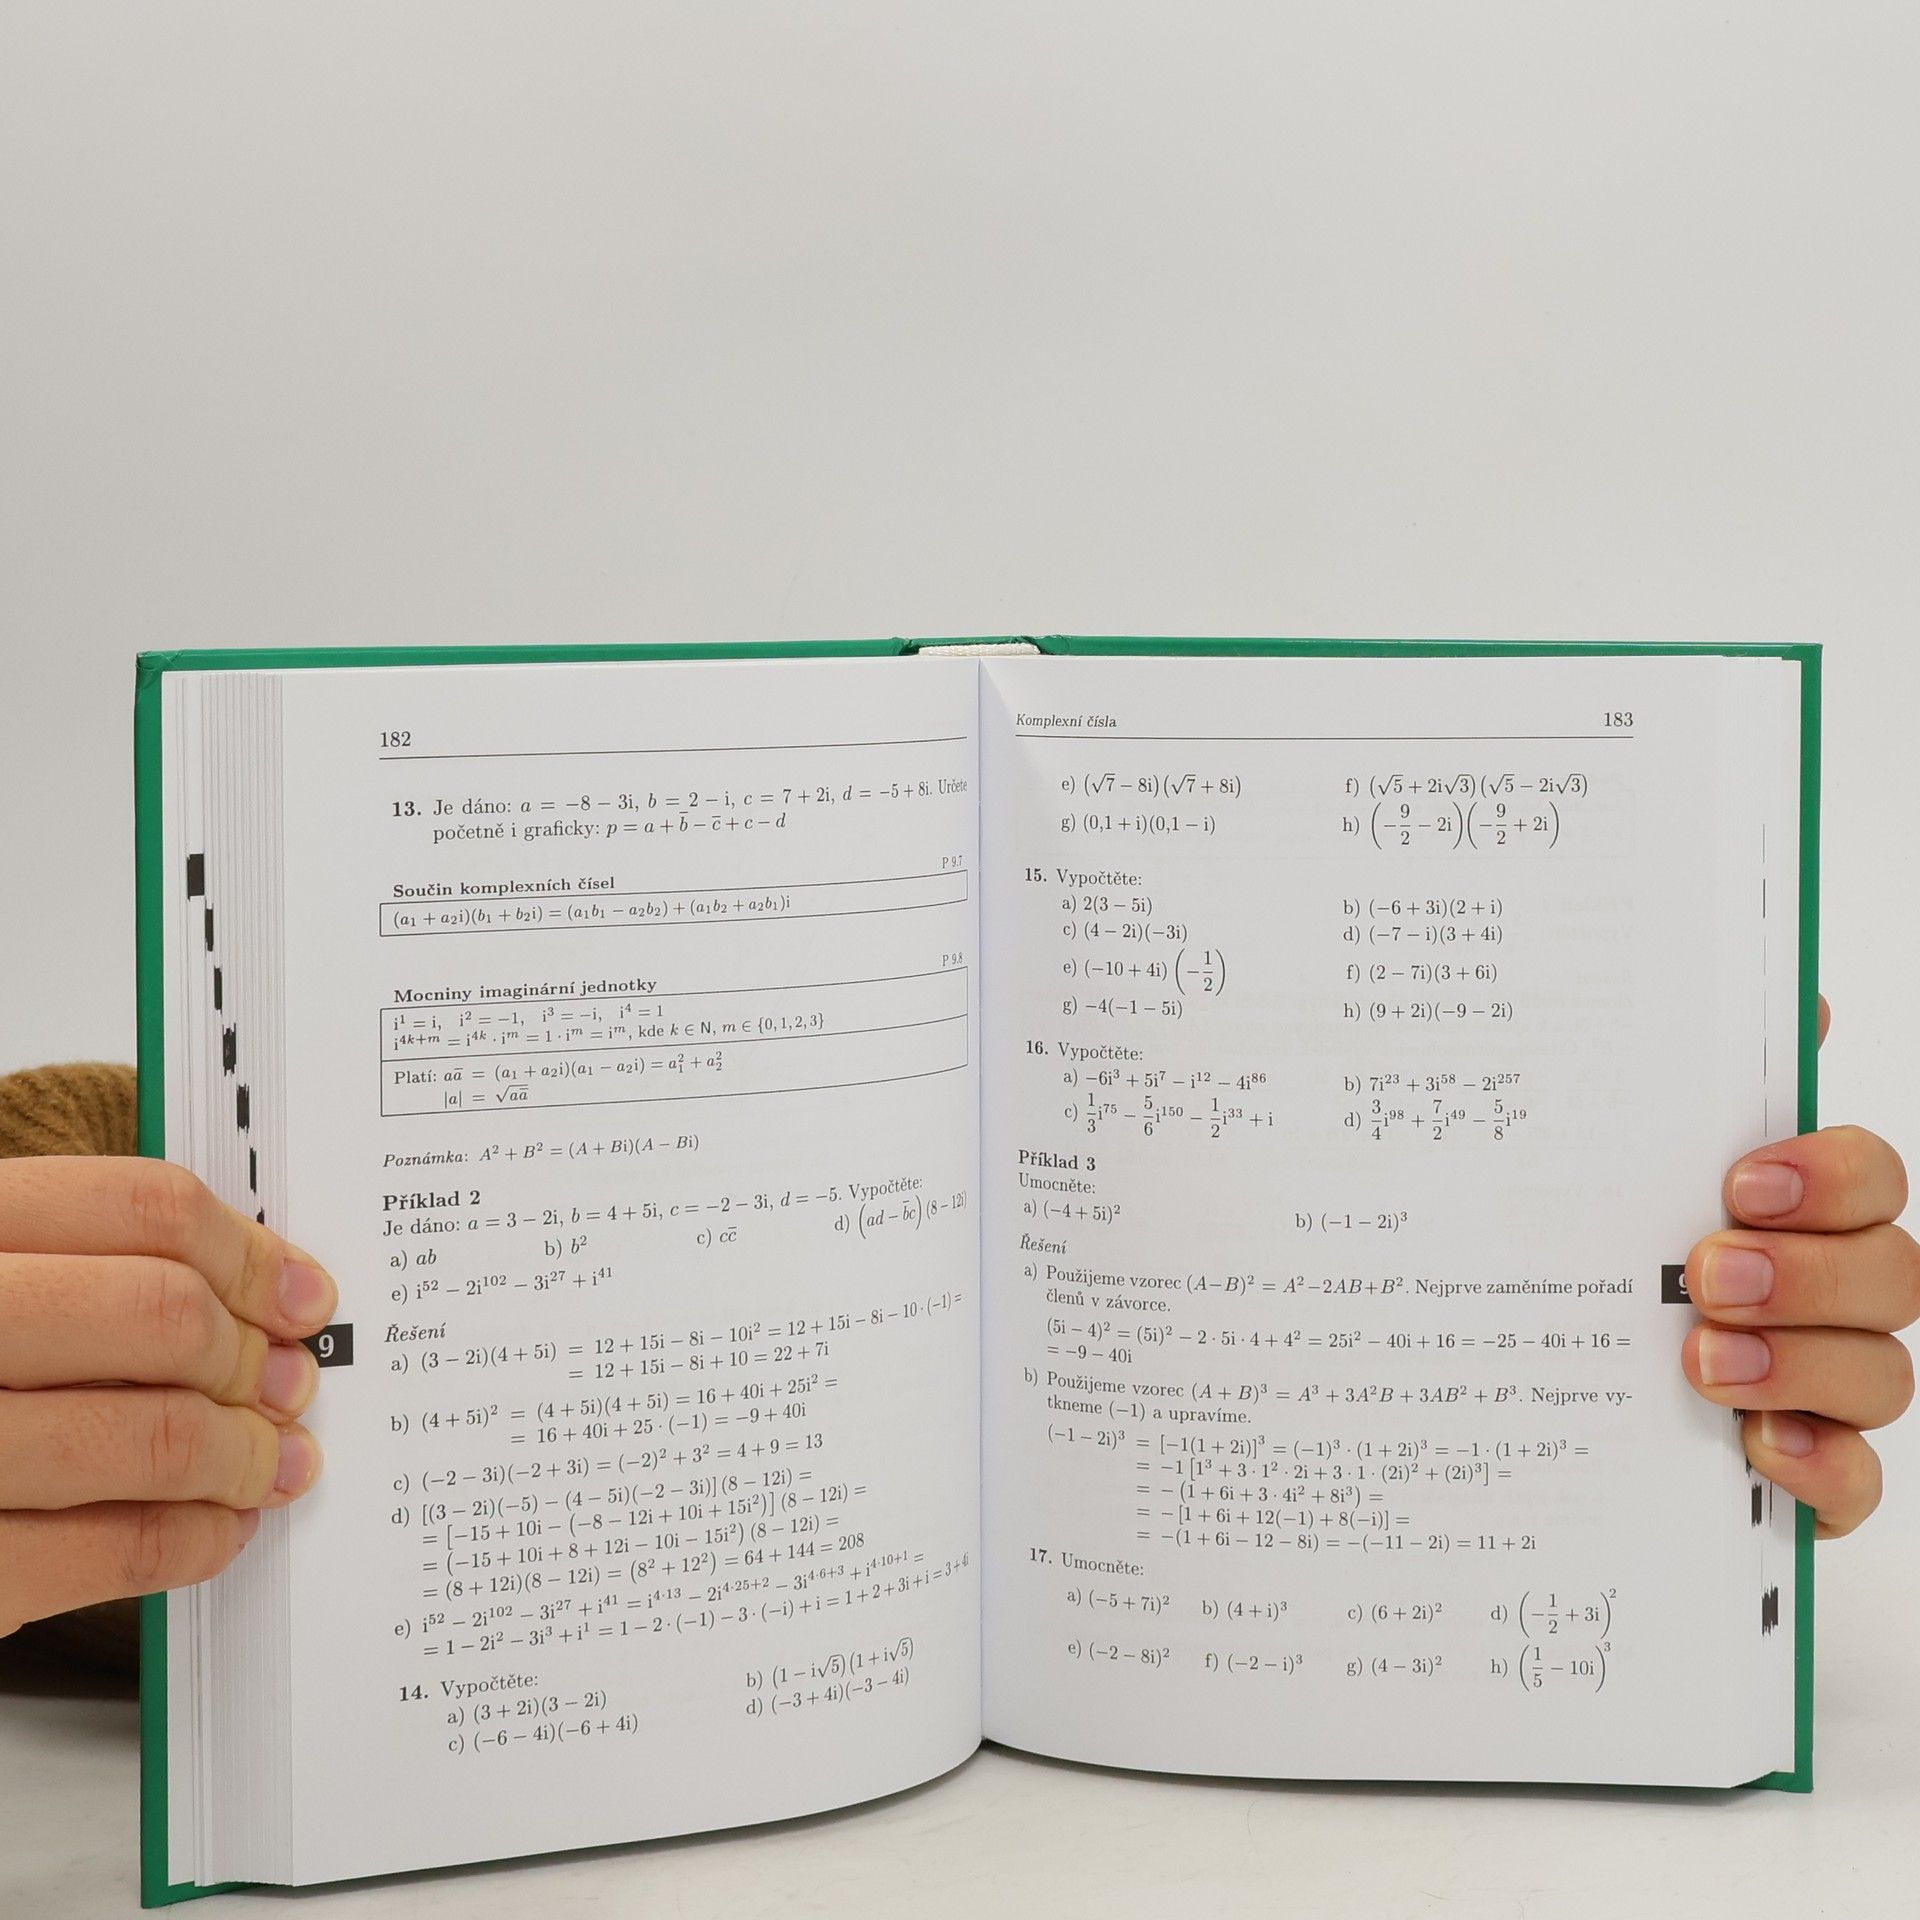 182
13. Je dáno: a = −8 − 3i, b = 2 − i, c = 7 + 2i, d = −5 + 8i. Určete
početně i graficky: p = a + b̄ − c̄ + c − d
P 9.7
Součin komplexních čísel
(a₁ + a₂i)(b₁ + b₂i) = (a₁b₁ − a₂b₂) + (a₁b₂ + a₂b₁)i
P 9.8
Mocniny imaginární jednotky
i¹ = i, i² = −1, i³ = −i, i⁴ = 1
i⁴ᵏ⁺ᵐ = i⁴ᵏ · iᵐ = 1 · iᵐ = iᵐ, kde k ∈ N, m ∈ {0, 1, 2, 3}
Platí: aā = (a₁ + a₂i)(a₁ − a₂i) = a₁² + a₂²
|a| = √(aā)
Poznámka: A² + B² = (A + Bi)(A − Bi)
Příklad 2
Je dáno: a = 3 − 2i, b = 4 + 5i, c = −2 − 3i, d = −5. Vypočtěte:
a) ab b) b² c) cc̄ d) (ad − b̄c)(8 − 12i)
e) i⁵² − 2i¹⁰² − 3i²⁷ + i⁴¹
Řešení
a) (3 − 2i)(4 + 5i) = 12 + 15i − 8i − 10i² = 12 + 15i − 8i − 10 · (−1) =
= 12 + 15i − 8i + 10 = 22 + 7i
b) (4 + 5i)² = (4 + 5i)(4 + 5i) = 16 + 40i + 25i² =
= 16 + 40i + 25 · (−1) = −9 + 40i
c) (−2 − 3i)(−2 + 3i) = (−2)² + 3² = 4 + 9 = 13
d) [(3 − 2i)(−5) − (4 − 5i)(−2 − 3i)] (8 − 12i) =
= [−15 + 10i − (−8 − 12i + 10i + 15i²)] (8 − 12i) =
= (−15 + 10i + 8 + 12i − 10i − 15i²) (8 − 12i) =
= (8 + 12i)(8 − 12i) = (8² + 12²) = 64 + 144 = 208
e) i⁵² − 2i¹⁰² − 3i²⁷ + i⁴¹ = i⁴·¹³ − 2i⁴·²⁵⁺² − 3i⁴·⁶⁺³ + i⁴·¹⁰⁺¹ =
= 1 − 2i² − 3i³ + i¹ = 1 − 2 · (−1) − 3 · (−i) + i = 1 + 2 + 3i + i = 3 + 4i
14. Vypočtěte:
a) (3 + 2i)(3 − 2i) b) (1 − i√5)(1 + i√5)
c) (−6 − 4i)(−6 + 4i) d) (−3 + 4i)(−3 − 4i)
9
Komplexní čísla 183
e) (√7 − 8i)(√7 + 8i) f) (√5 + 2i√3)(√5 − 2i√3)
g) (0,1 + i)(0,1 − i) h) (−9/2 − 2i)(−9/2 + 2i)
15. Vypočtěte:
a) 2(3 − 5i) b) (−6 + 3i)(2 + i)
c) (4 − 2i)(−3i) d) (−7 − i)(3 + 4i)
e) (−10 + 4i)(−1/2) f) (2 − 7i)(3 + 6i)
g) −4(−1 − 5i) h) (9 + 2i)(−9 − 2i)
16. Vypočtěte:
a) −6i³ + 5i⁷ − i¹² − 4i⁸⁶ b) 7i²³ + 3i⁵⁸ − 2i²⁵⁷
c) 1/3 i⁷⁵ − 5/6 i¹⁵⁰ − 1/2 i³³ + i d) 3/4 i⁹⁸ + 7/2 i⁴⁹ − 5/8 i¹⁹
Příklad 3
Umocněte:
a) (−4 + 5i)² b) (−1 − 2i)³
Řešení
a) Použijeme vzorec (A−B)² = A²−2AB+B². Nejprve zaměníme pořadí
členů v závorce.
(5i − 4)² = (5i)² − 2 · 5i · 4 + 4² = 25i² − 40i + 16 = −25 − 40i + 16 =
= −9 − 40i
b) Použijeme vzorec (A + B)³ = A³ + 3A²B + 3AB² + B³. Nejprve vy-
tkneme (−1) a upravíme.
(−1 − 2i)³ = [−1(1 + 2i)]³ = (−1)³ · (1 + 2i)³ = −1 · (1 + 2i)³ =
= −1 [1³ + 3 · 1² · 2i + 3 · 1 · (2i)² + (2i)³] =
= − (1 + 6i + 3 · 4i² + 8i³) =
= − [1 + 6i + 12(−1) + 8(−i)] =
= −(1 + 6i − 12 − 8i) = −(−11 − 2i) = 11 + 2i
17. Umocněte:
a) (−5 + 7i)² b) (4 + i)³ c) (6 + 2i)² d) (−1/2 + 3i)²
e) (−2 − 8i)² f) (−2 − i)³ g) (4 − 3i)² h) (1/5 − 10i)³
9